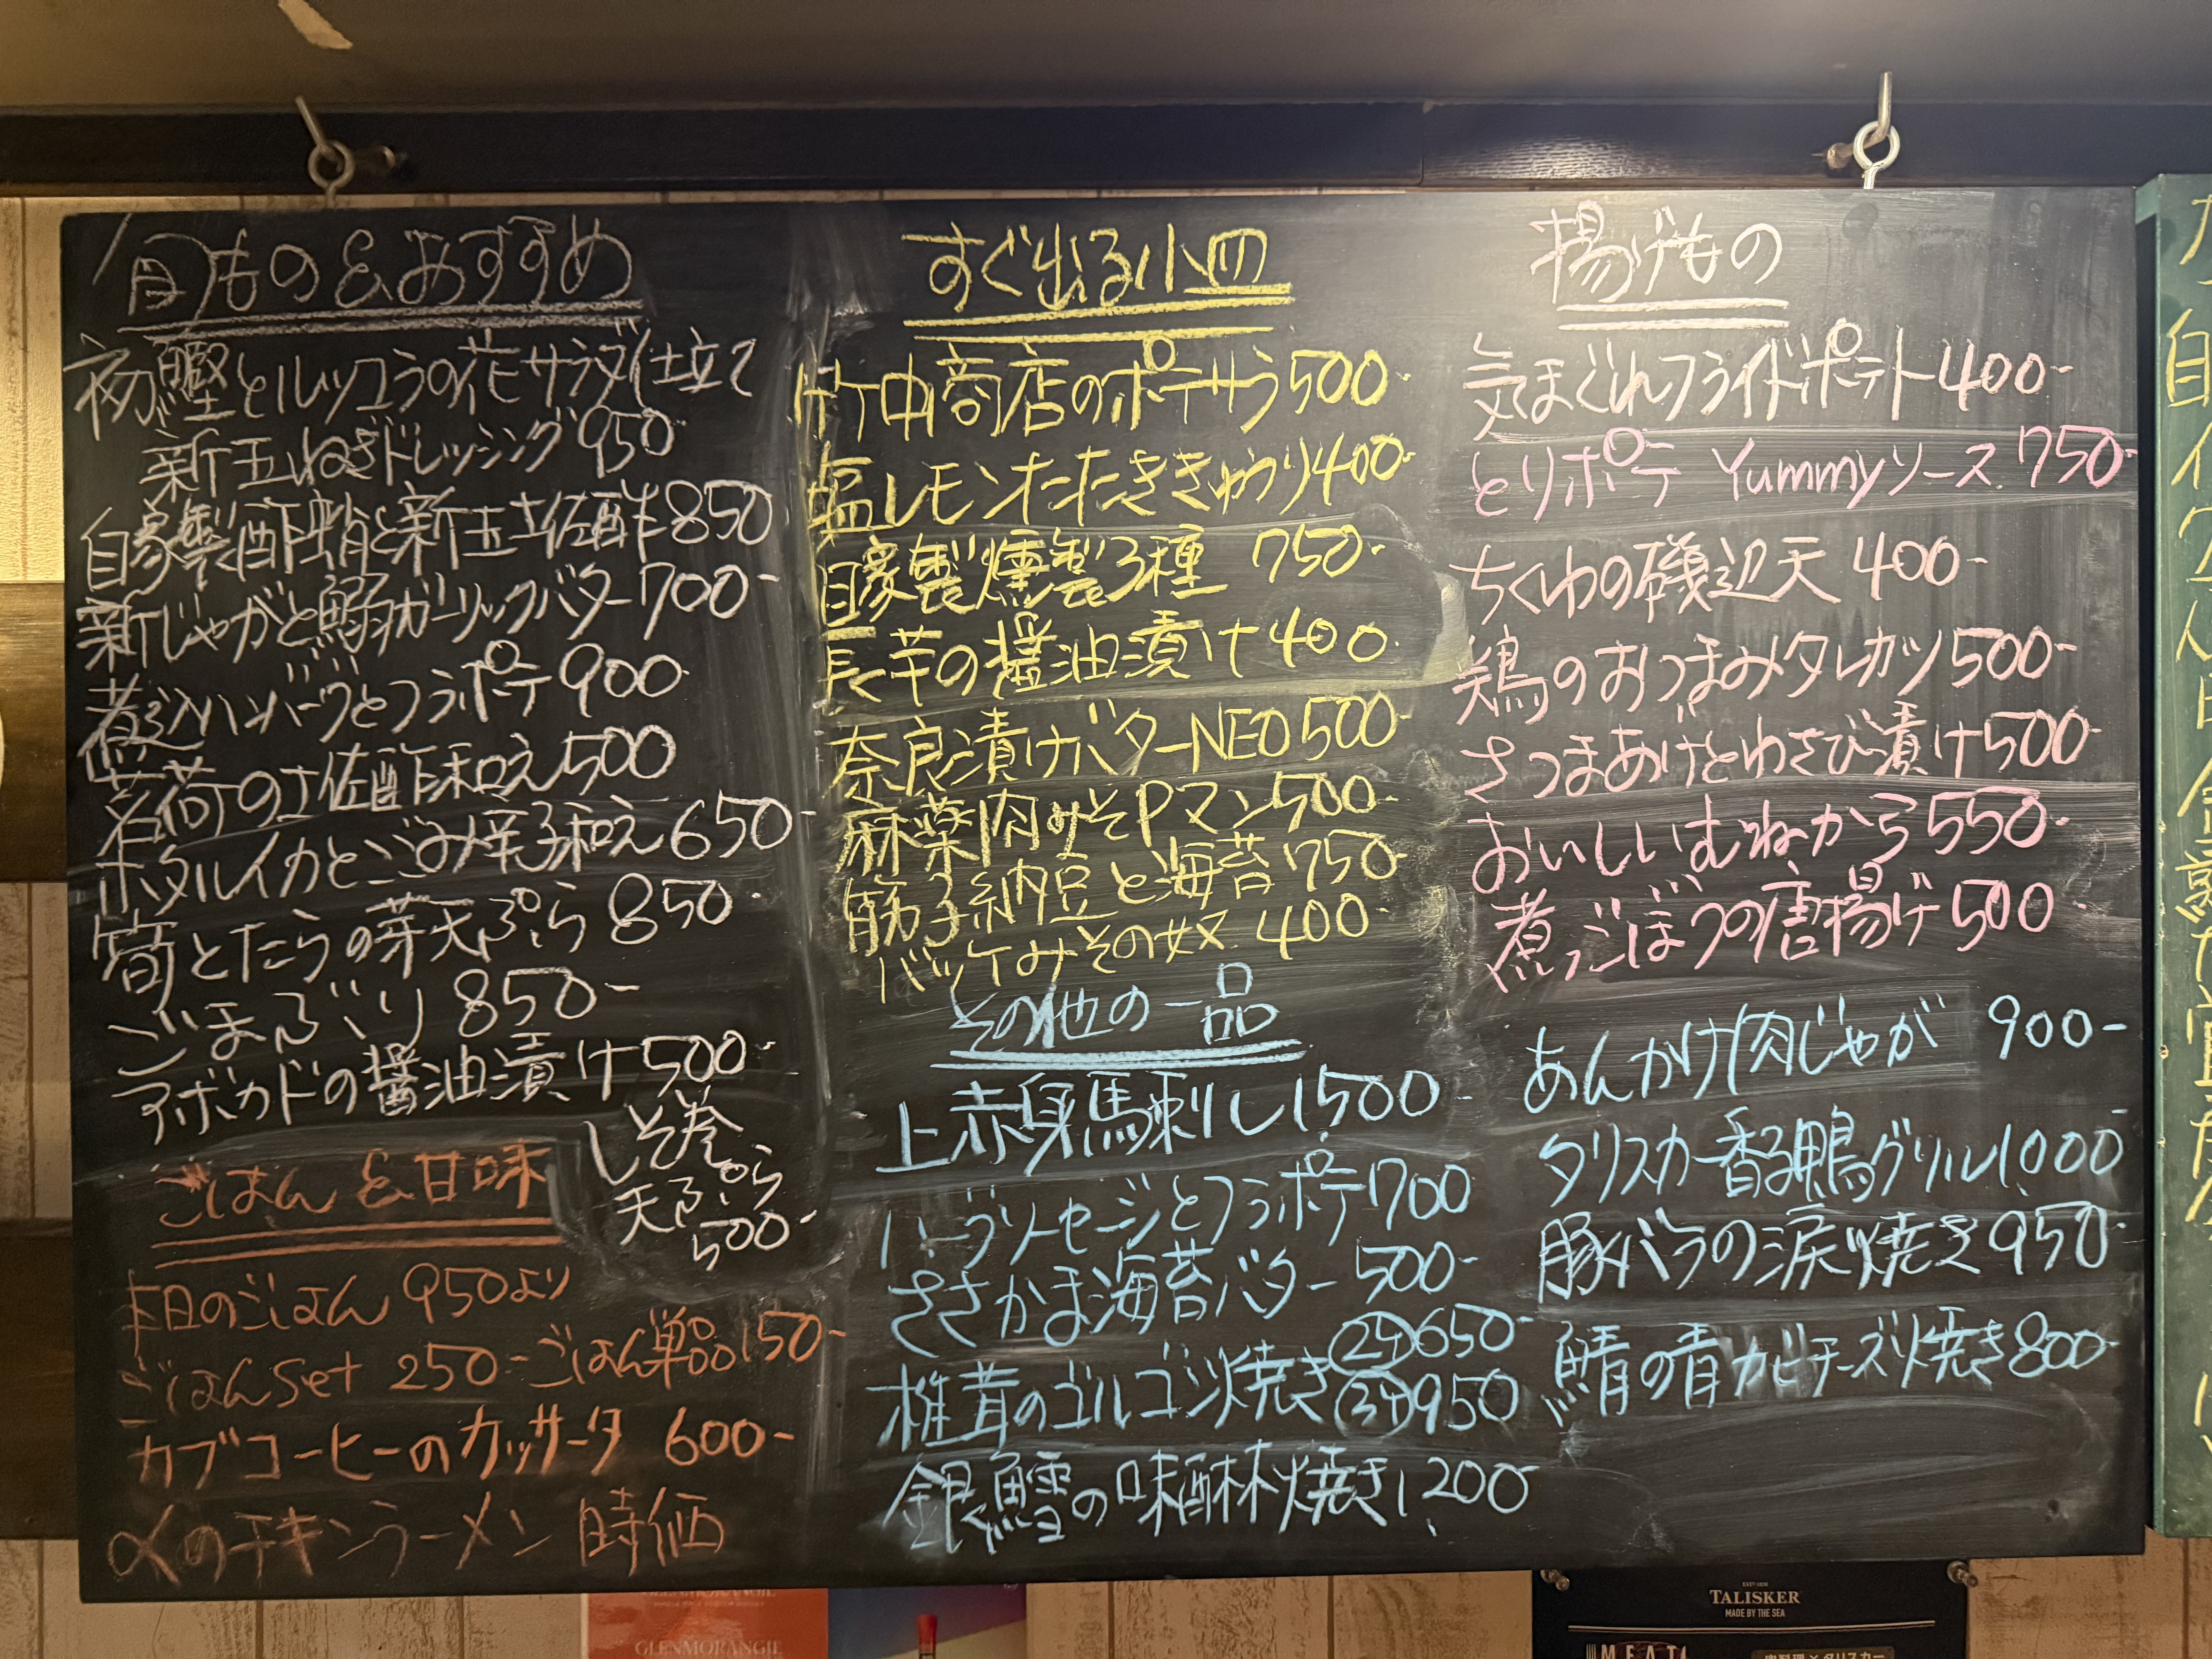 旬もの&おすすめ
初鰹とルッコラの花サラダ仕立て
新玉ねぎドレッシング 950-
自家製酢蛸と新玉土佐酢 850
新じゃがと鰯ガーリックバター 700-
煮込ハンバーグとフラポテ 900-
茗荷の土佐酢和え 500
ホタルイカとごみ辛子和え 650-
筍とたらの芽天ぷら 850-
ごまぶり 850-
アボカドの醤油漬け 500-
しそ巻
天ぷら
500-
ごはん&甘味
本日のごはん 950より
ごはんSet 250- ごはん単品 150-
カブコーヒーのカッサータ 600-
〆のチキンラーメン 時価
すぐ出る小皿
竹中商店のポテサラ 500-
塩レモンたたききゅうり 400-
自家製燻製3種 750-
長芋の醤油漬け 400
奈良漬けバターNEO 500-
麻薬肉みそPマン 500-
筋子納豆と海苔 750-
バッケみその奴 400-
その他の一品
上赤身馬刺し 1,500-
ハーブソーセージとフラポテ 700
ささかま海苔バター 500-
椎茸のゴルゴンゾ焼き 2ケ 650-
3ケ 950
銀鱈の味醂焼き 1,200-
揚げもの
気まぐれフライドポテト 400-
とりポテ Yummyソース 750-
ちくわの磯辺天 400-
鶏のおつまみタレカツ 500-
さつまあげとわさび漬け 500-
おいしいむねから 550-
煮ごぼうの唐揚げ 500-
あんかけ肉じゃが 900-
タリスカー香る鴨グリル 1,000-
豚バラの涙焼き 950-
鯖の青カビチーズ焼き 800-
GLENMORANGIE
TALISKER
MADE BY THE SEA
MEAT